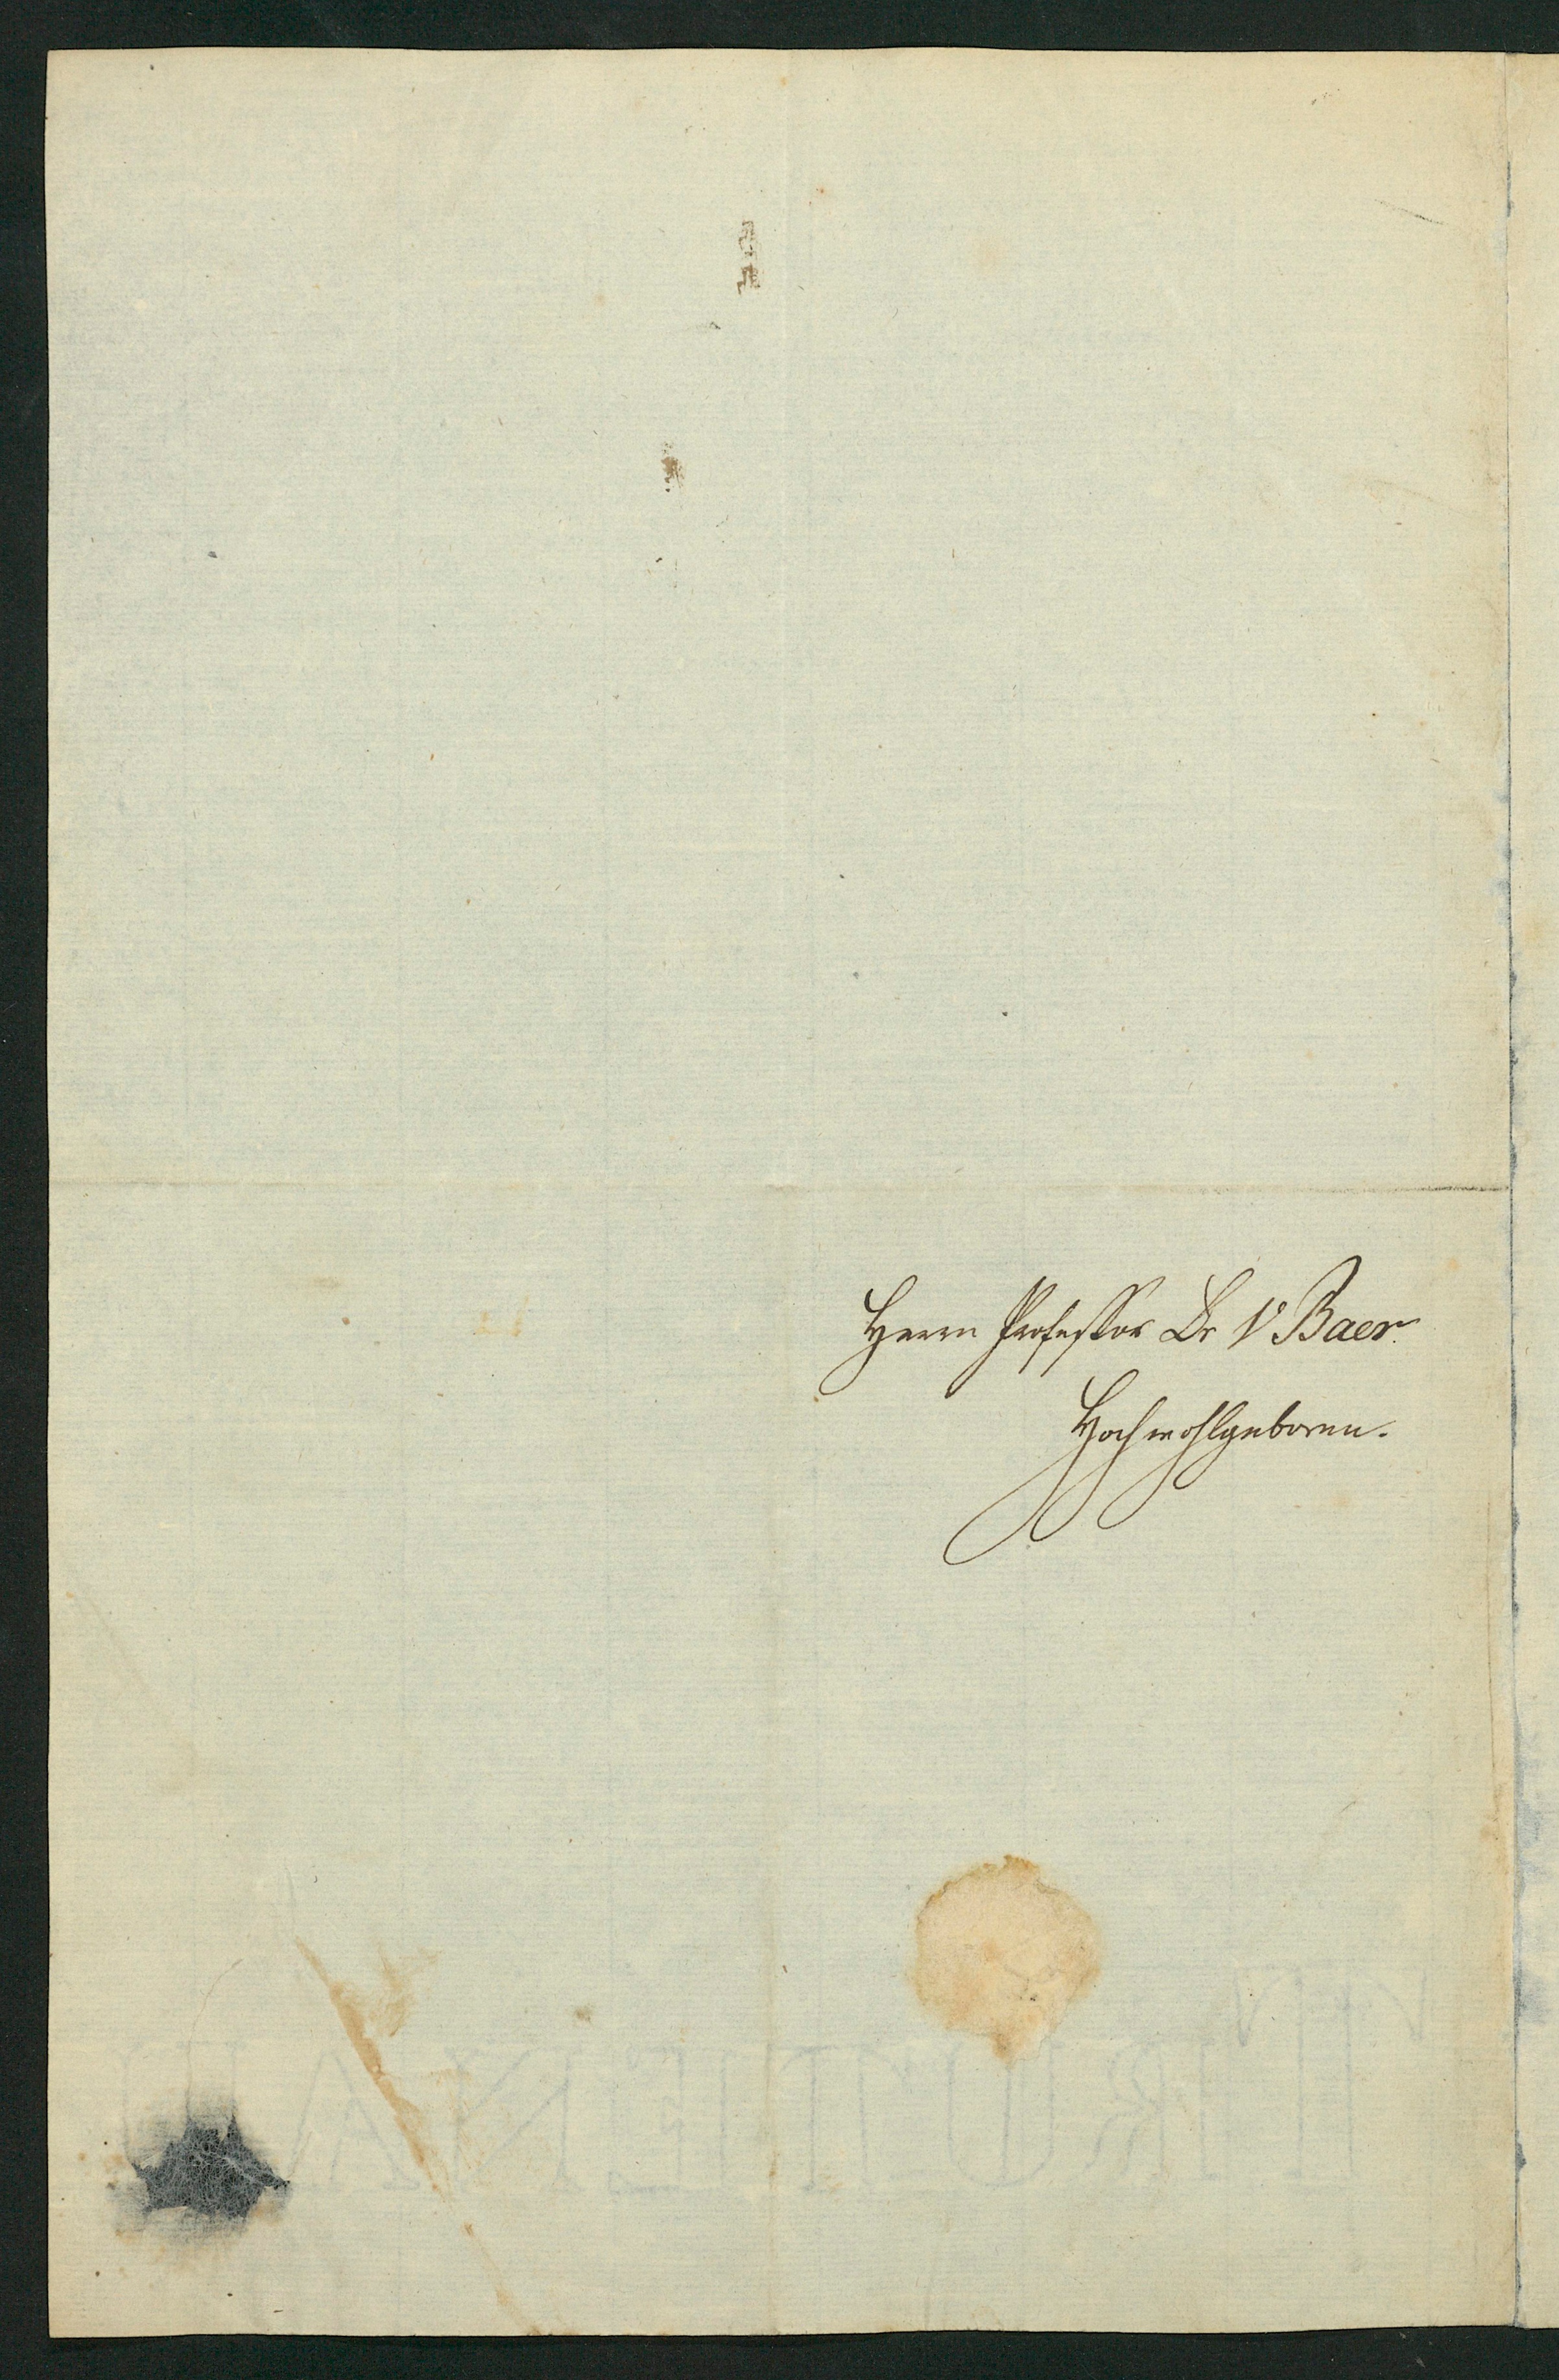 Herrn Professor Dr v Baer
Hochwohlgeboren.